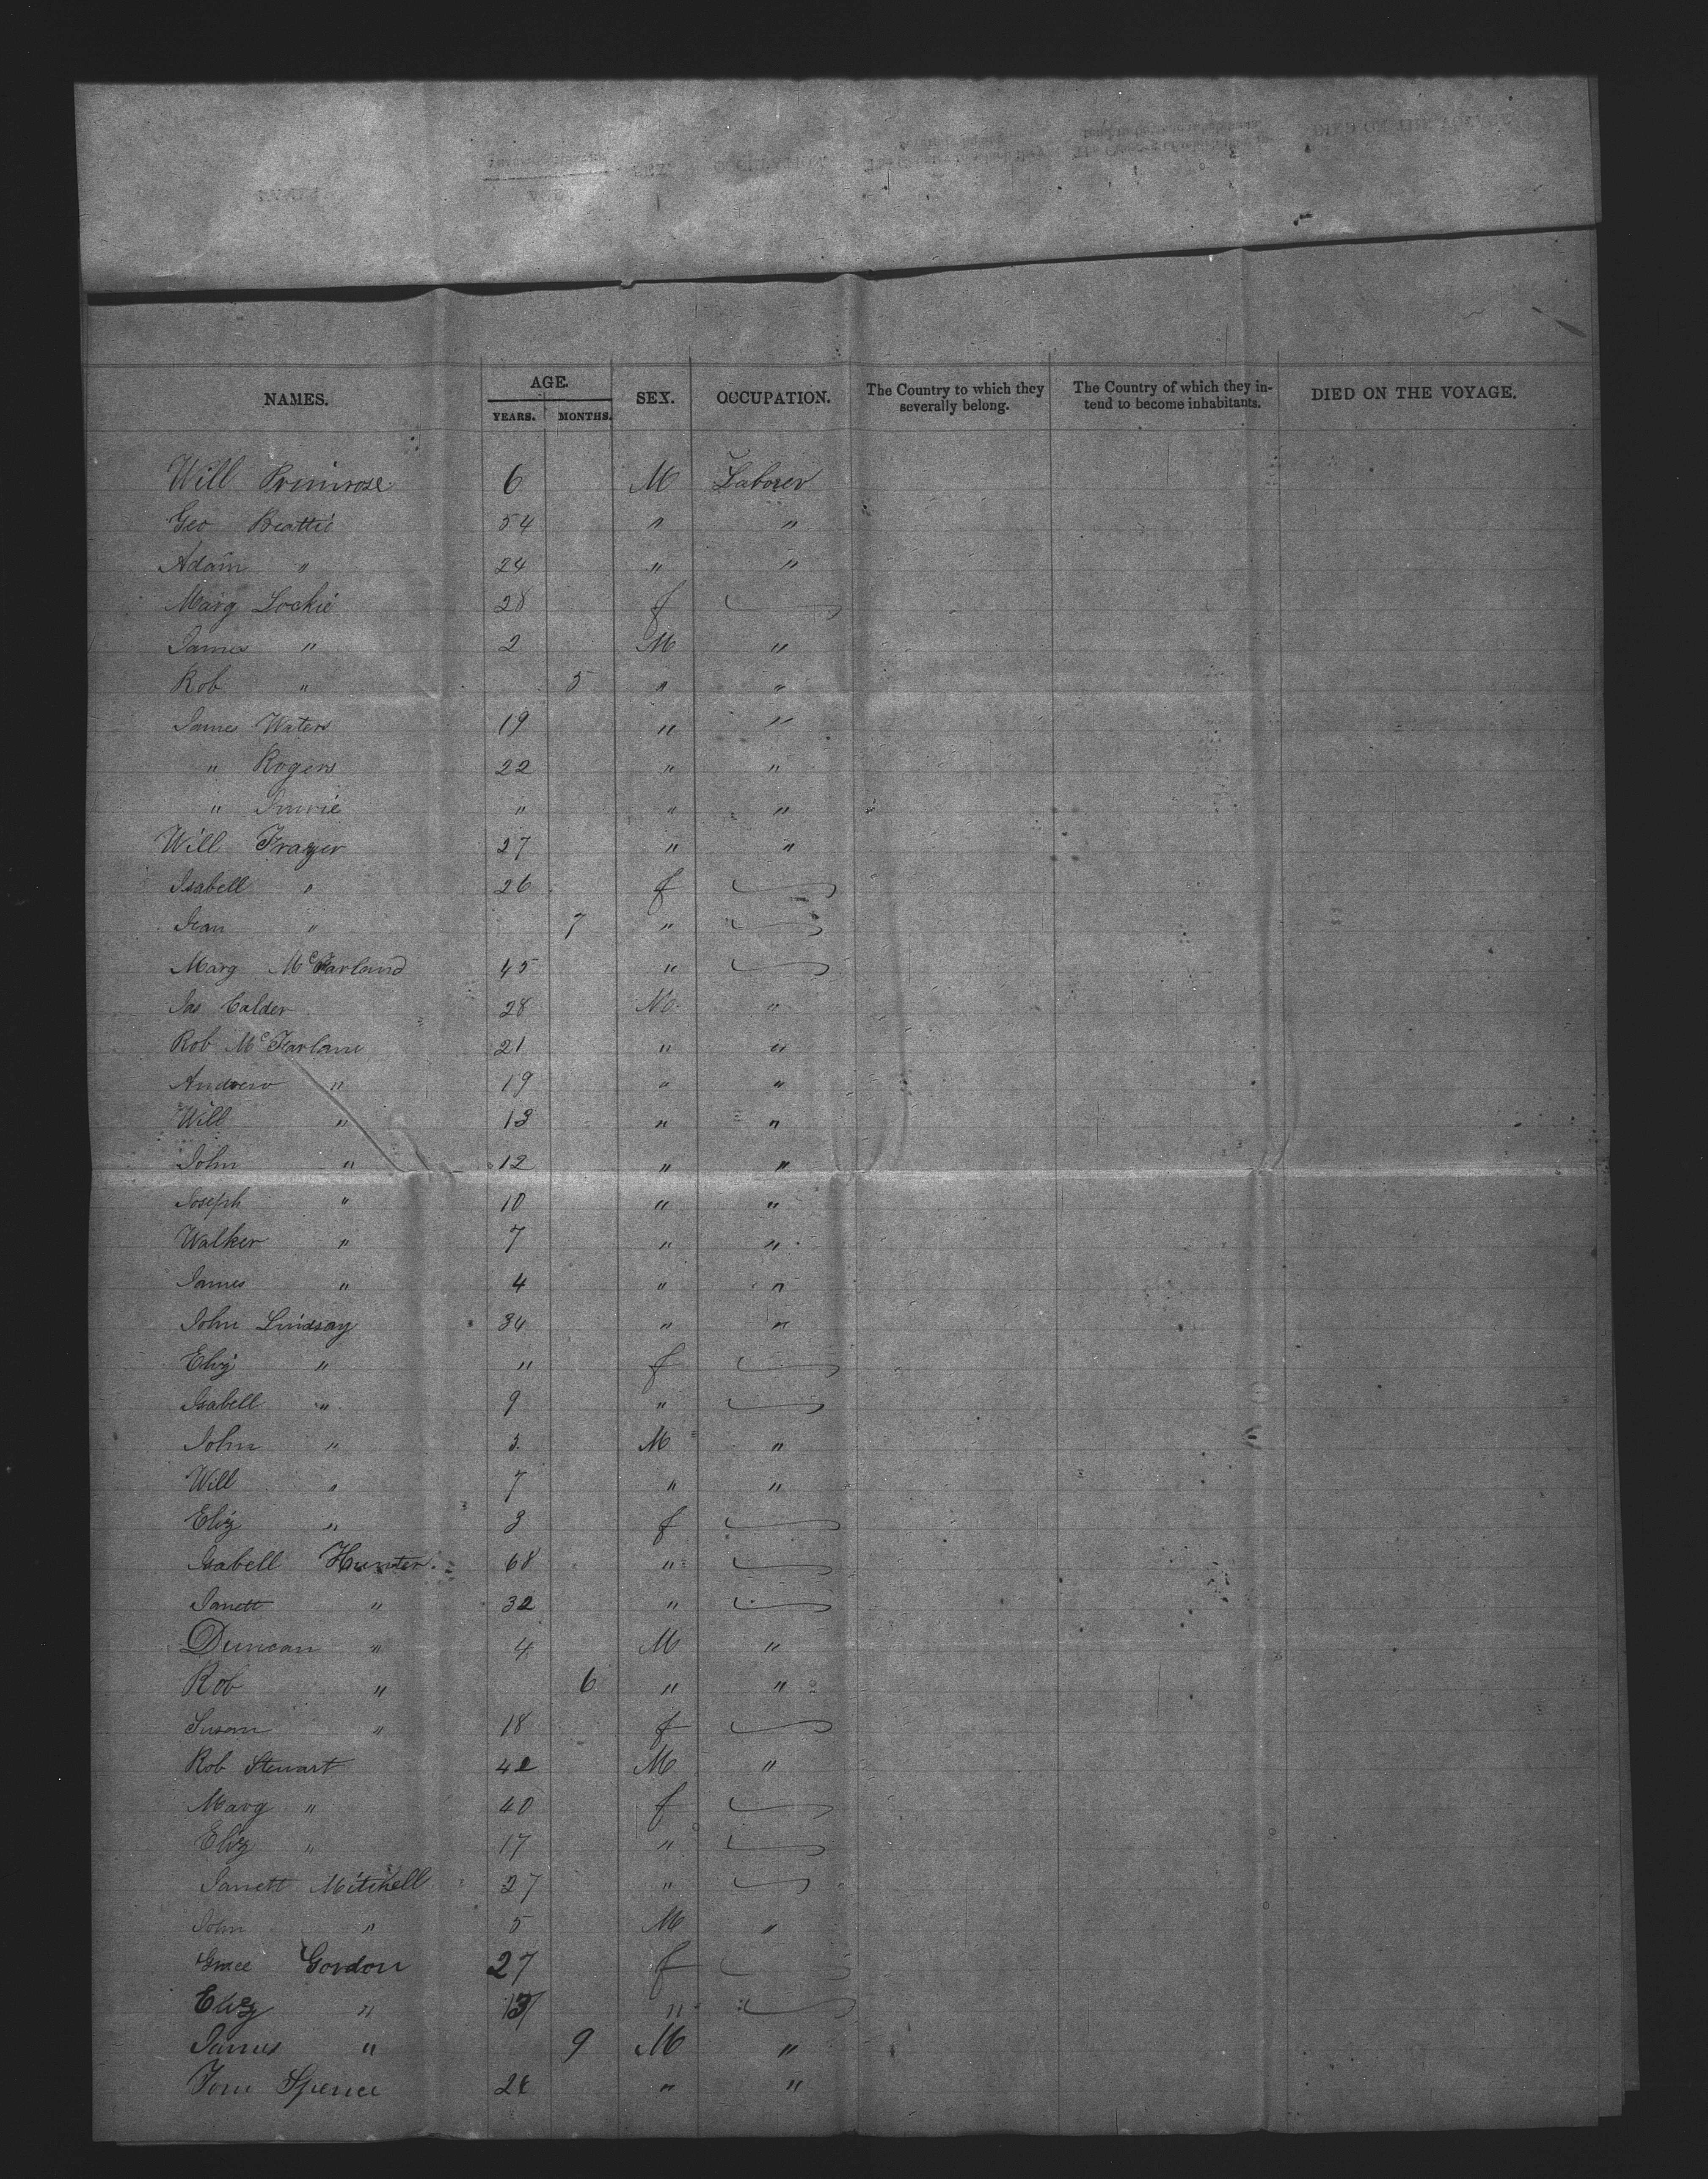 NAMES. AGE. YEARS. MONTHS. SEX. OCCUPATION. The Country to which they severally belong. The Country of which they intend to become inhabitants. DIED ON THE VOYAGE.
Will Primrose 6 M Laborer
Geo Beattie 54 " "
Adam " 24 " "
Marg Lockie 28 f
James " 2 M "
Rob " 5 " "
James Waters 19 " "
" Rogers 22 " "
" Imrie " " "
Will Frazer 27 " "
Isabell " 26 f
Jean " 7 "
Marg McFarland 45 "
Jas Calder 28 M "
Rob McFarlane 21 " "
Andrew " 19 " "
Will " 13 " "
John " 12 " "
Joseph " 10 " "
Walker " 7 " "
James " 4 " "
John Lindsay 34 " "
Eliz " " f
Isabell " 9 "
John " 5 M "
Will " 7 " "
Eliz " 3 f
Isabell Hunter 68 "
Janett " 32 "
Duncan " 4 M "
Rob " 6 " "
Susan " 18 f
Rob Stewart 42 M "
Marg " 40 f
Eliz " 17 "
Janett Mitchell 27 "
John " 5 M "
Grace Gordon 27 f
Eliz " "
James " 9 M "
Tom Spence " "